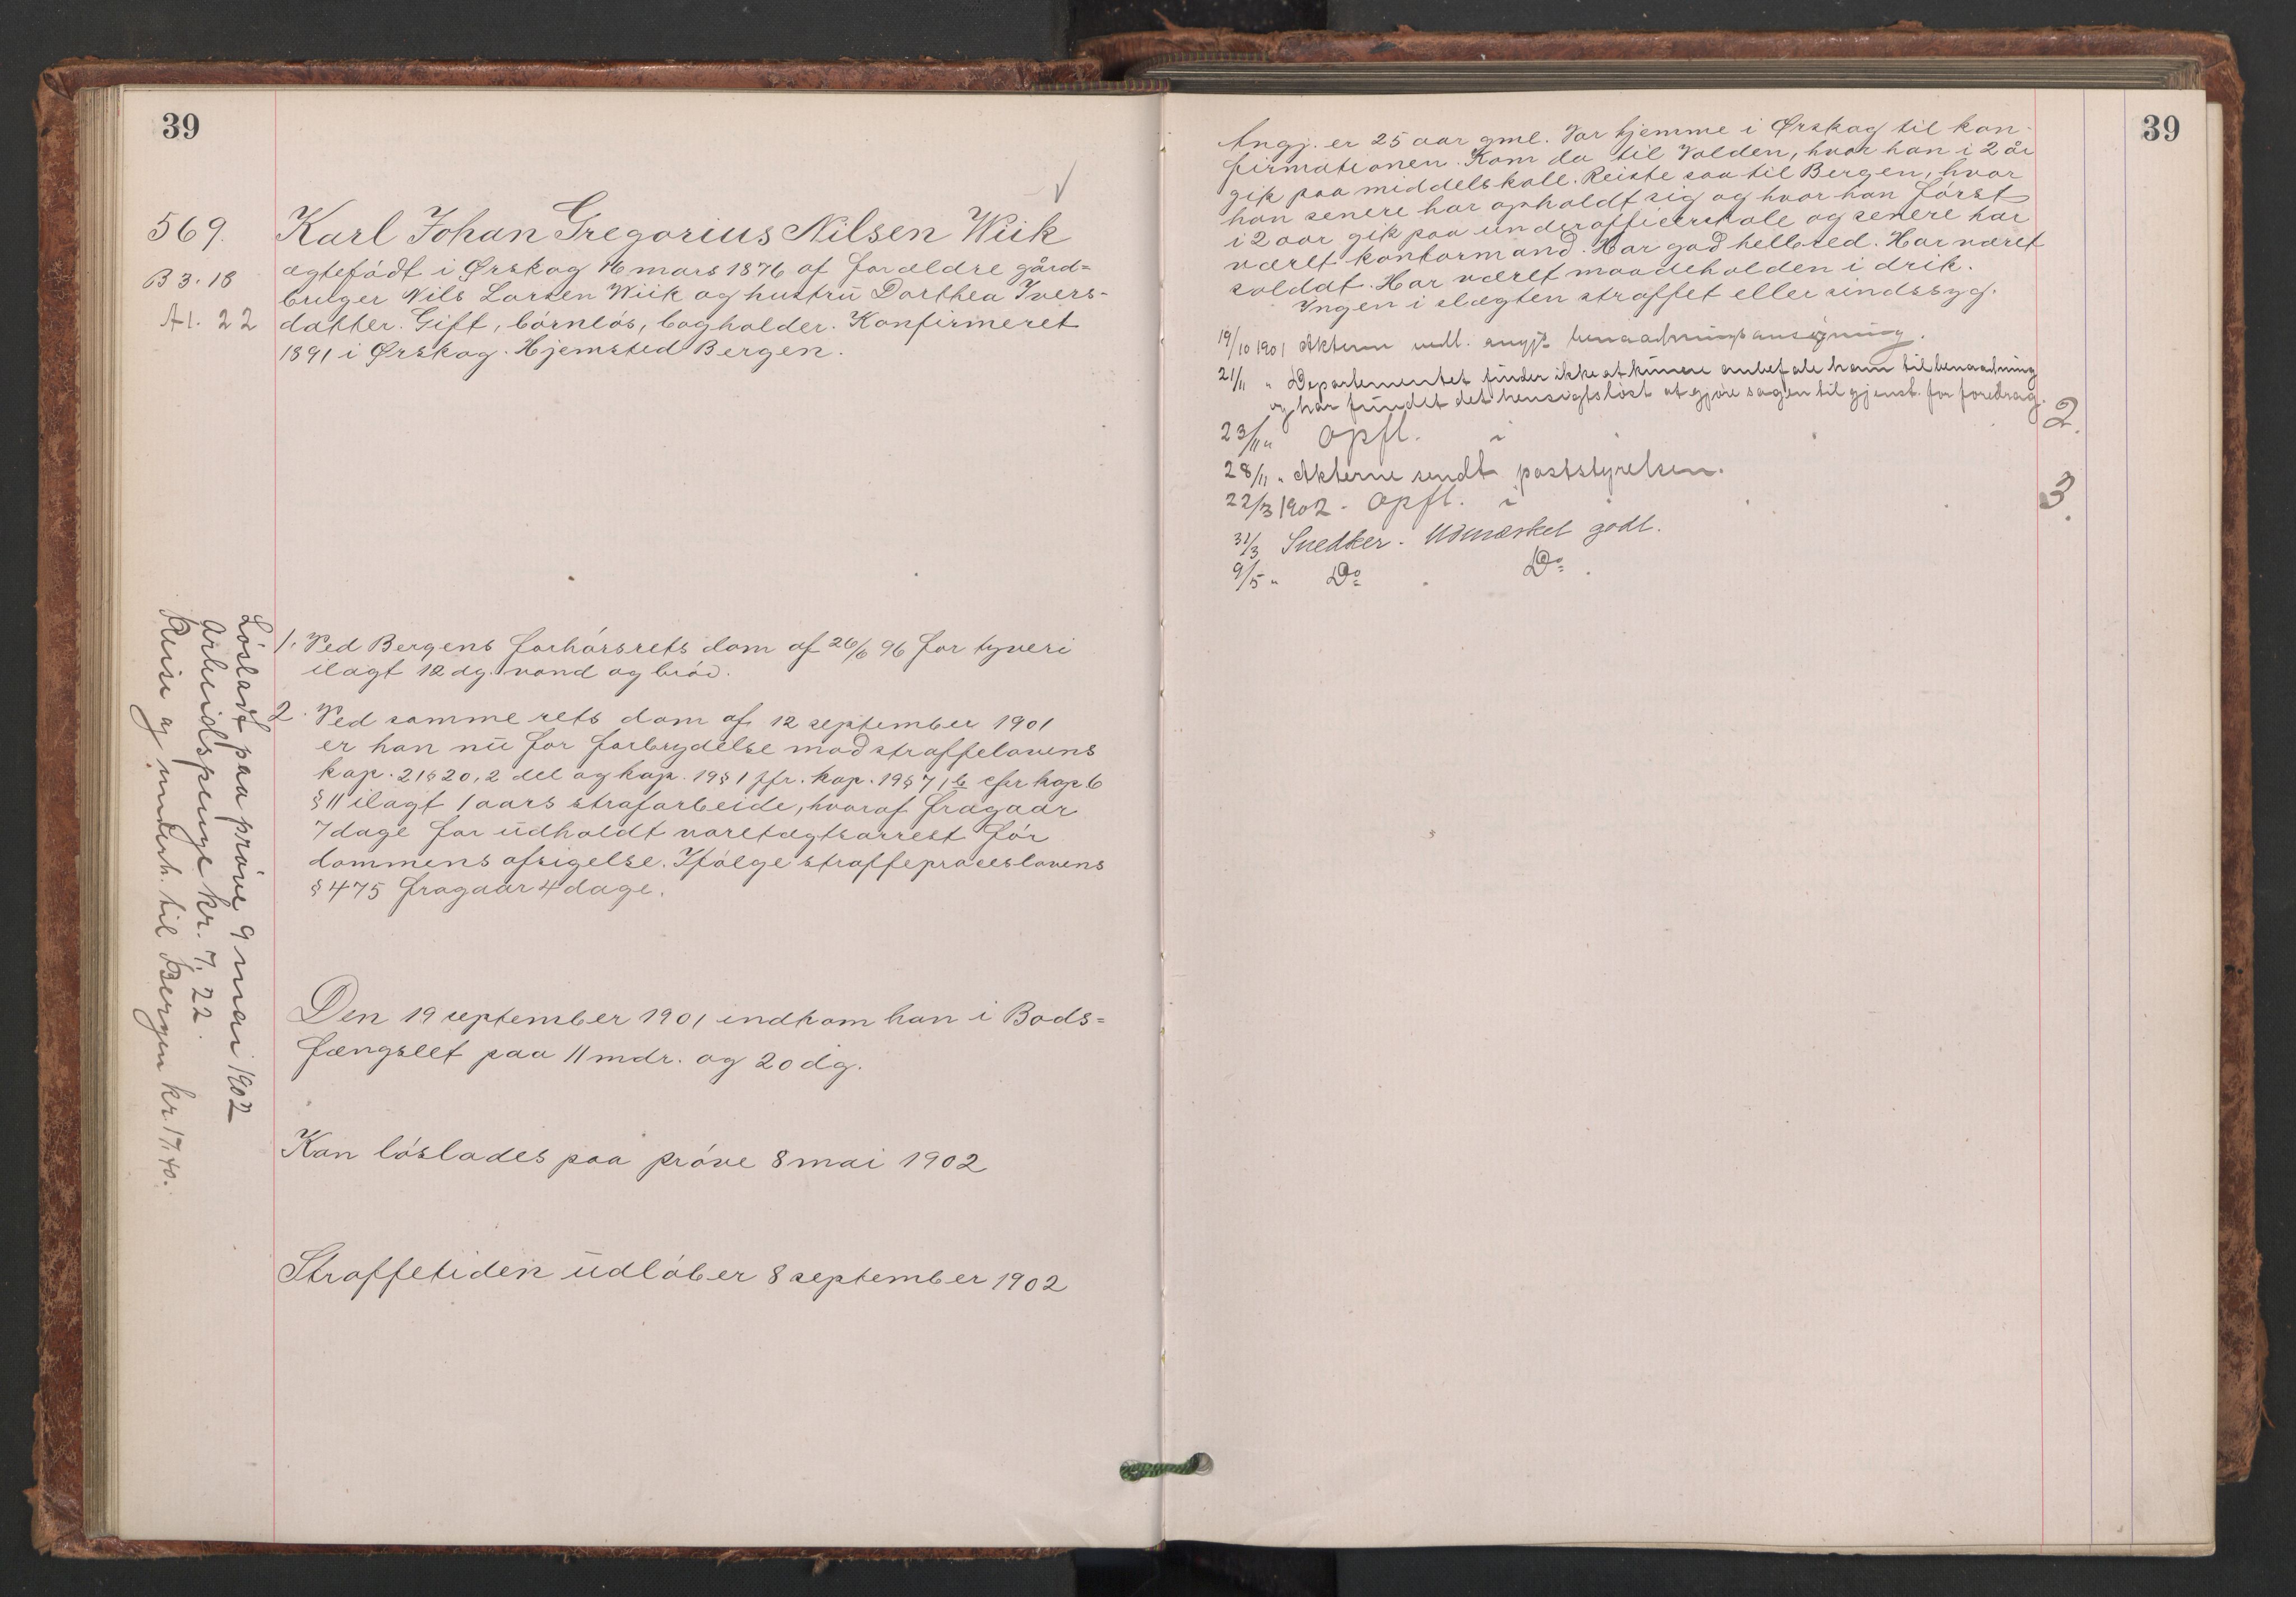 39
569.
B 3. 18
A 1. 22
Karl Johan Gregorius Nilsen Wiik
ægtefödt i Ørskog 16 mars 1876 af forældre gård=
bruger Nils Larsen Wiik og hustru Dorthea Ivers-
datter. Gift, börnlös, bogholder. Konfirmeret
1891 i Ørskog. Hjemsted Bergen.
1. Ved Bergens forhörsrets dom af 26/6 96 for tyveri
ilagt 12 dg. vand og bröd.
2. Ved samme rets dom af 12 september 1901
er han nu for forbrydelse mod straffelovens
kap. 21 § 20, 2 del og kap. 19 § 1 jfr. kap. 19 § 7 1 b efter kap 6
§ 11 ilagt 1 aars strafarbeide, hvoraf fragaar
7 dage for udholdt varetægtsarrest för
dommens afsigelse. Ifölge straffeproceslovens
§ 475 fragaar 4 dage.
Den 19 september 1901 indkom han i Bods=
fængslet paa 11 mdr. og 20 dg.
Kan löslades paa pröve 8 mai 1902
Straffetiden udlöber 8 september 1902
Lösladt paa pröve 9 mai 1902
Arbeidspenge kr. 7.22
Reise og underh. til Bergen kr. 17,40.
39
Angj. er 25 aar gml. Var hjemme i Ørskog til kon-
firmationen. Kom da til Volden, hvor han i 2 år
gik paa middelskole. Reiste saa til Bergen, hvor
han senere har opholdt sig og hvor han först
i 2 aar gik paa underofficerskole og senere har
været kontormand. Har god helbred. Har været
soldat. Har været maadeholden i drik.
Ingen i slægten straffet eller sindssyg.
19/10 1901 Akterne vedl. angj.s benaadningsansögning.
21/11 " Departementet finder ikke at kunne anbefale ham til benaadning
og har fundet det hensigtslöst at gjöre sagen til gjenst. for foredrag.
23/11 " Opfl. i 2.
28/11 " Akterne sendt poststyrelsen.
22/3 1902 - Opfl. i 3.
31/3 Snedker. Udmærket godt.
9/5 " Do Do.